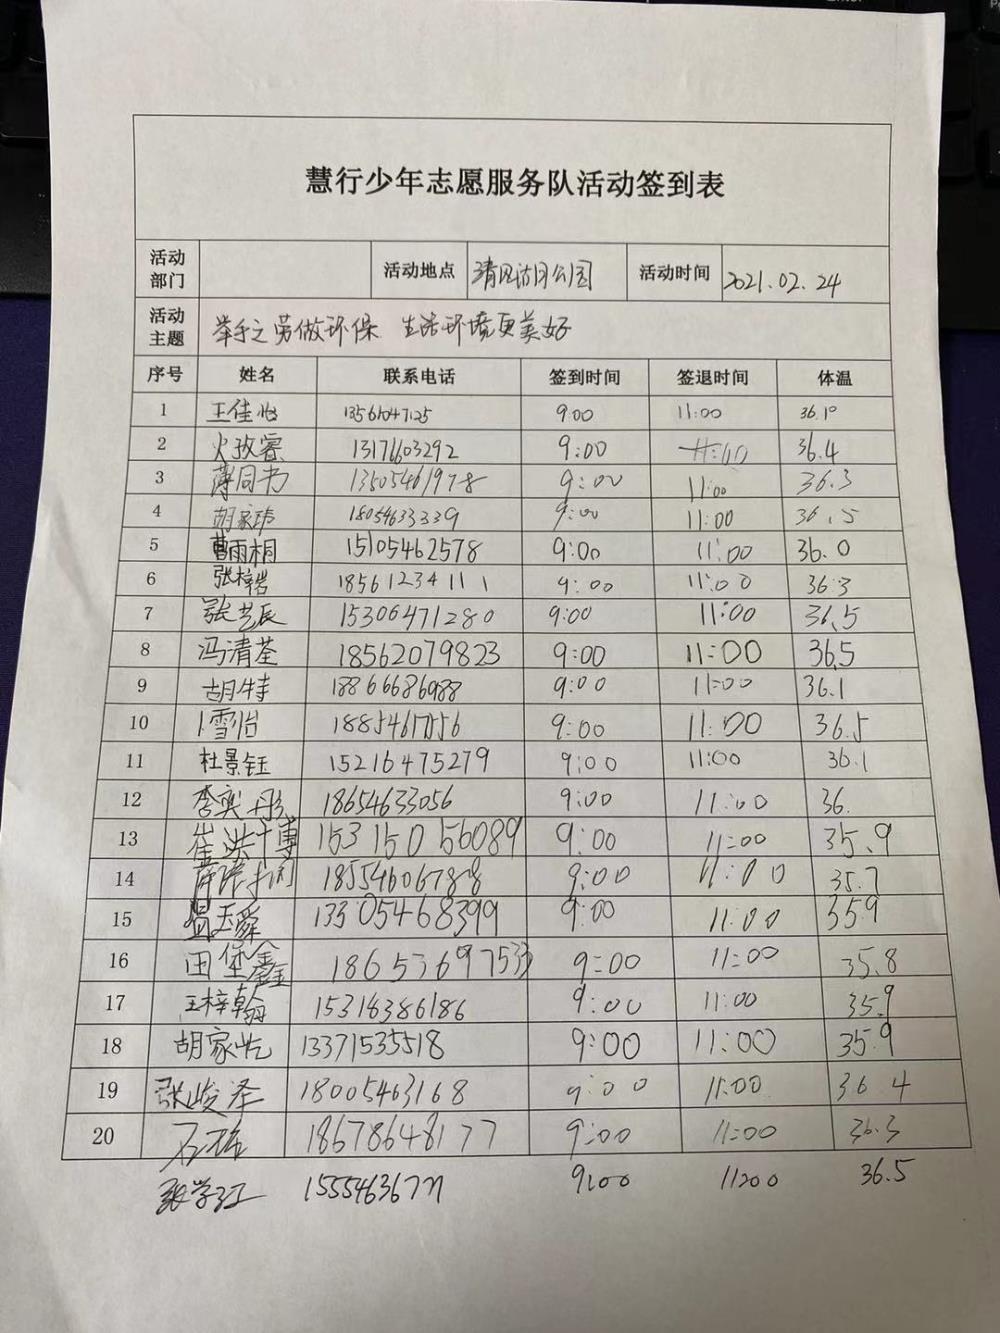 慧行少年志愿服务队活动签到表
活动部门 活动地点 清风湖公园 活动时间 2021.02.24
活动主题 举手之劳做环保 生活环境更美好
序号 姓名 联系电话 签到时间 签退时间 体温
1 王佳怡 13561047125 9:00 11:00 36.1°
2 13171603292 9:00 11:00 36.4
3 薄同书 13505461978 9:00 11:00 36.3
4 胡家玮 18054633339 9:00 11:00 36.5
5 曹雨桐 15105462578 9:00 11:00 36.0
6 张梓岩 18561234111 9:00 11:00 36.3
7 张艺辰 15306471280 9:00 11:00 36.5
8 冯清荃 18562079823 9:00 11:00 36.5
9 胡特 18866686988 9:00 11:00 36.1
10 卜雪怡 9:00 11:00 36.5
11 杜景钰 15216475279 9:00 11:00 36.1
12 李奕彤 18654633056 9:00 11:00 36.
13 崔洪博 15315056089 9:00 11:00 35.9
14 18554606788 9:00 11:00 35.7
15 玉舜 13305468399 9:00 11:00 35.9
16 田堡鑫 18653697533 9:00 11:00 35.8
17 王梓翰 15318386186 9:00 11:00 35.9
18 胡家屹 13371535518 9:00 11:00 35.9
19 张峻泽 18005463168 9:00 11:00 36.4
20 18678648177 9:00 11:00 36.3
张学江 9:00 11:00 36.5